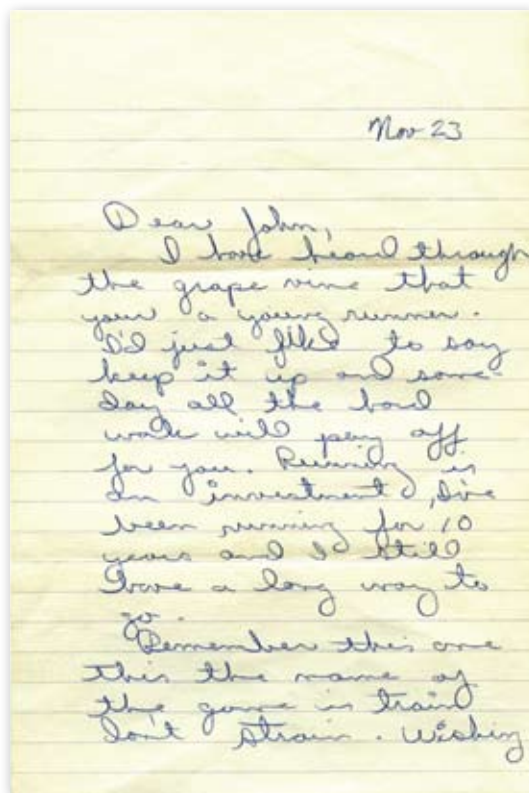 Nov 23
Dear John,
I have heard through
the grape vine that
your a young runner.
I'd just like to say
keep it up and some-
day all the hard
work will pay off
for you. Running is
an investment, I've
been running for 10
years and I still
have a long way to
go.
Remember this one
this the name of
the game is train
don't strain. Wishing